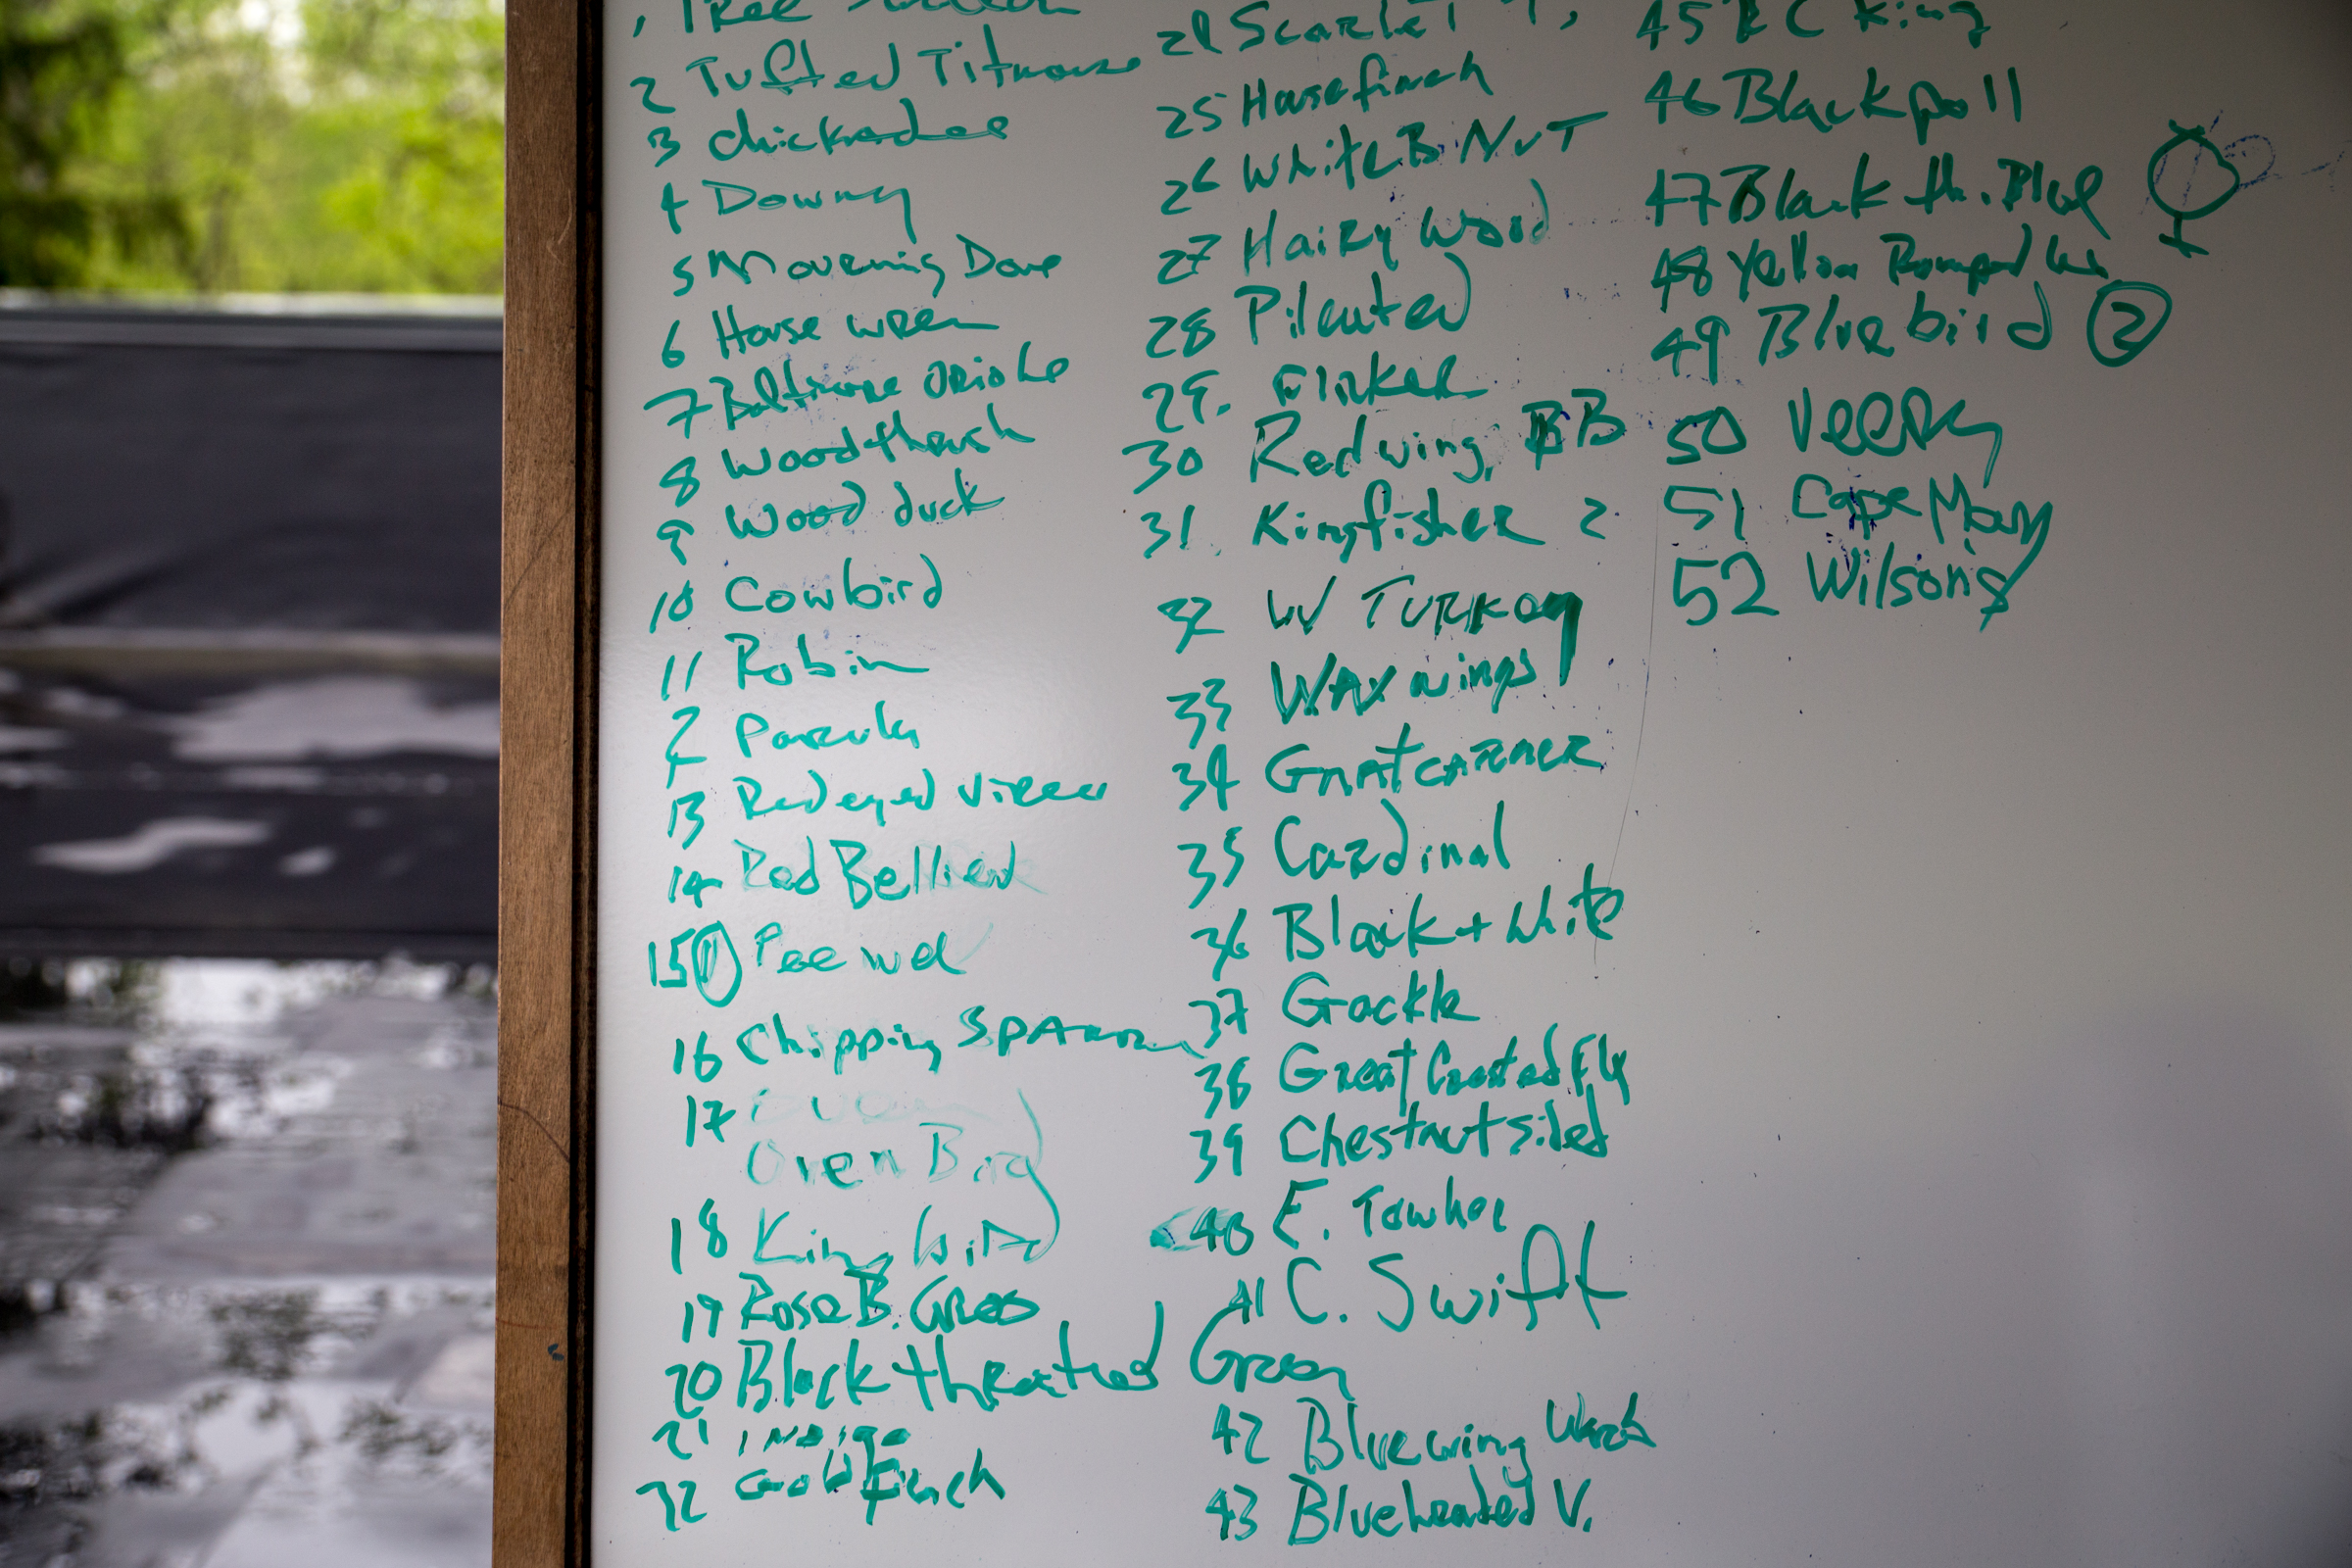 1 Tree
2 Tufted Titmouse
3 chickadee
4 Downy
5 Mourning Dove
6 House wren
7 Baltimore Oriole
8 Wood thrush
9 Wood duck
10 Cowbird
11 Robin
12 Parula
13 Red eyed vireo
14 Red Bellied
15 Pee wee
16 Chipping Sparrow
17
Oven Bird
18 King bird
19 Rose B. Gros
20 Black throated Green
21 indigo
22 Goldfinch
24 Scarlet T,
25 House finch
26 White B Nut
27 Hairy Wood
28 Pileated
29. Flicker
30 Red wing, BB
31. Kingfisher 2
32 W Turkey
33 Wax wings
34 Gnatcatcher
35 Cardinal
36 Black + White
37 Grackle
38 Great Crested Fly
39 Chestnut sided
40 E. Towhee
41 C. Swift
42 Blue wing Warb
43 Blue headed V.
45 RC King
46 Blackpoll
47 Black th. Blue
48 Yellow Rumped
49 Bluebird 2
50 Veery
51 Cape May
52 Wilsons